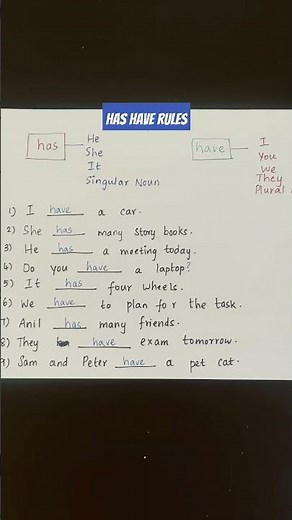 HAS HAVE RULES
has
He
She
It
Singular Noun
have
I
You
We
They
Plural
1) I have a car.
2) She has many story books.
3) He has a meeting today.
4) Do you have a laptop?
5) It has four wheels.
6) We have to plan for the task.
7) Anil has many friends.
8) They have exam tomorrow.
9) Sam and Peter have a pet cat.